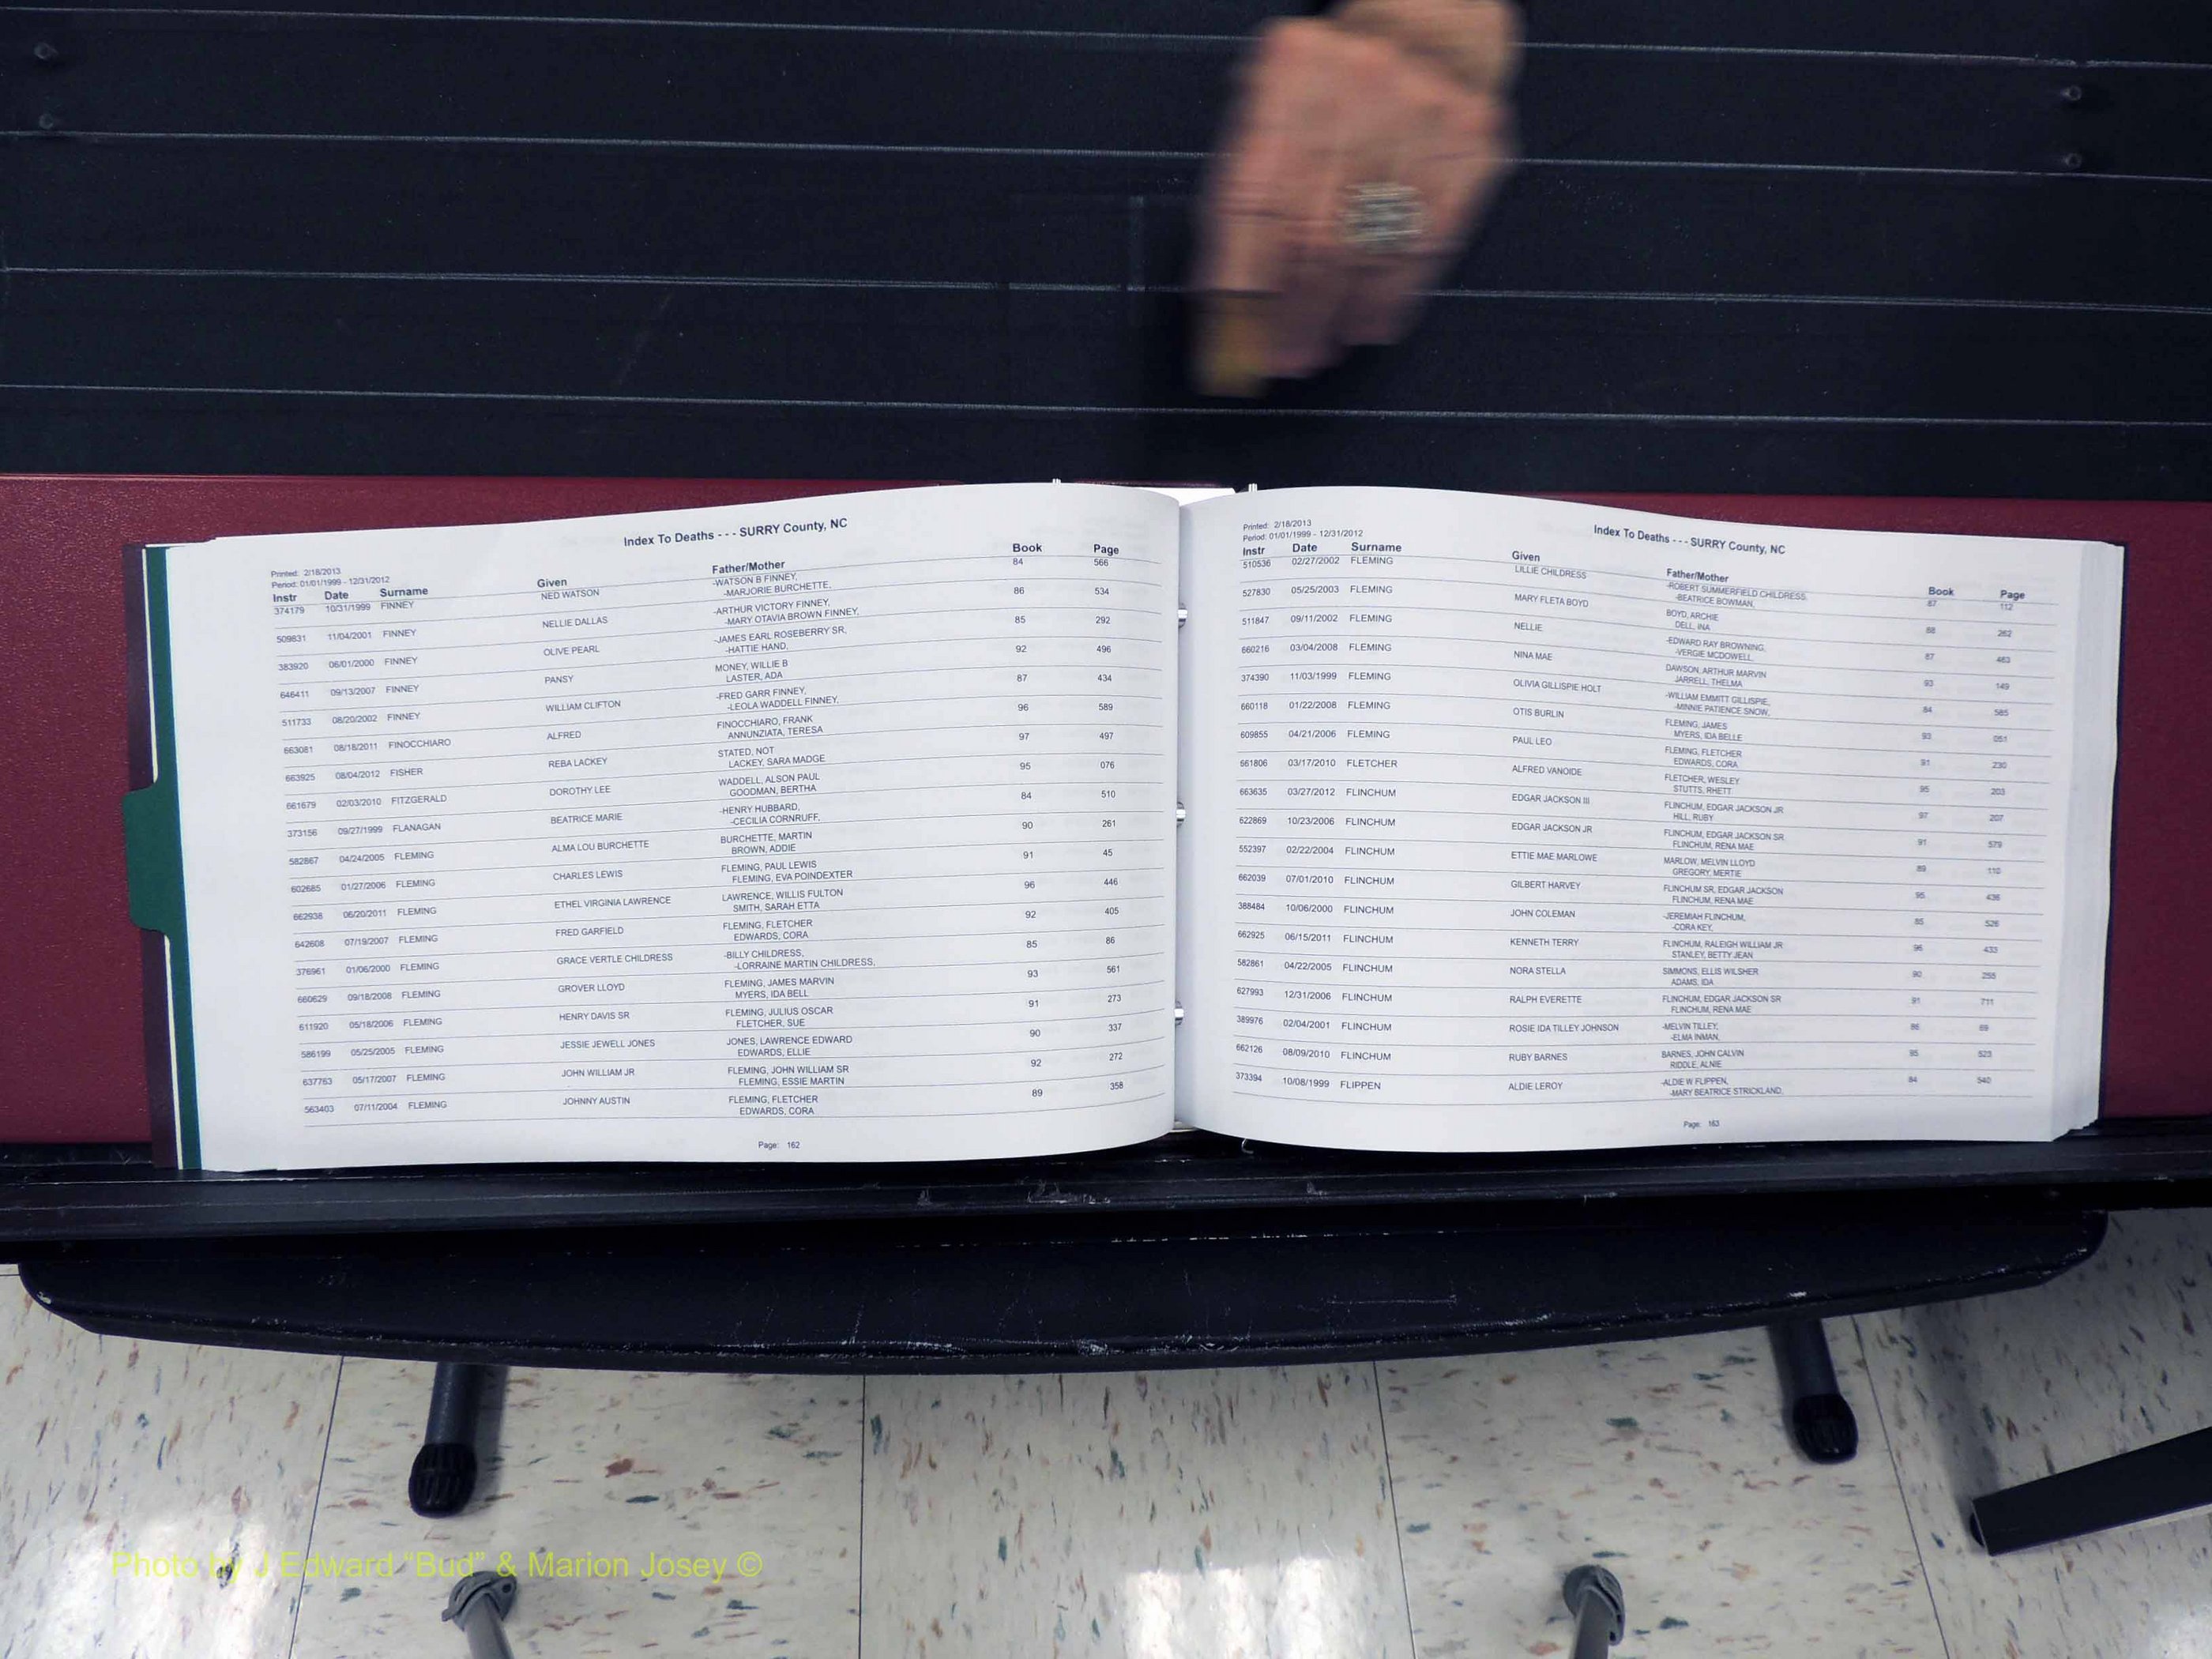 Index To Deaths - - - SURRY County, NC
Printed: 2/18/2013
Period: 01/01/1999 - 12/31/2012
Instr Date Surname Given Father/Mother Book Page
374179 10/31/1999 FINNEY NED WATSON -WATSON B FINNEY, 84 566
-MARJORIE BURCHETTE,
509831 11/04/2001 FINNEY NELLIE DALLAS -ARTHUR VICTORY FINNEY, 86 534
-MARY OTAVIA BROWN FINNEY,
383920 06/01/2000 FINNEY OLIVE PEARL -JAMES EARL ROSEBERRY SR, 85 292
-HATTIE HAND,
646411 09/13/2007 FINNEY PANSY MONEY, WILLIE B 92 496
LASTER, ADA
511733 08/20/2002 FINNEY WILLIAM CLIFTON -FRED GARR FINNEY, 87 434
-LEOLA WADDELL FINNEY,
663081 08/18/2011 FINOCCHIARO ALFRED FINOCCHIARO, FRANK 96 589
ANNUNZIATA, TERESA
663925 08/04/2012 FISHER REBA LACKEY STATED, NOT 97 497
LACKEY, SARA MADGE
661679 02/03/2010 FITZGERALD DOROTHY LEE WADDELL, ALSON PAUL 95 076
GOODMAN, BERTHA
373156 09/27/1999 FLANAGAN BEATRICE MARIE -HENRY HUBBARD, 84 510
-CECILIA CORNRUFF,
582867 04/24/2005 FLEMING ALMA LOU BURCHETTE BURCHETTE, MARTIN 90 261
BROWN, ADDIE
602685 01/27/2006 FLEMING CHARLES LEWIS FLEMING, PAUL LEWIS 91 45
FLEMING, EVA POINDEXTER
662938 06/20/2011 FLEMING ETHEL VIRGINIA LAWRENCE LAWRENCE, WILLIS FULTON 96 446
SMITH, SARAH ETTA
642608 07/19/2007 FLEMING FRED GARFIELD FLEMING, FLETCHER 92 405
EDWARDS, CORA
376961 01/06/2000 FLEMING GRACE VERTLE CHILDRESS -BILLY CHILDRESS, 85 86
-LORRAINE MARTIN CHILDRESS,
660629 09/18/2008 FLEMING GROVER LLOYD FLEMING, JAMES MARVIN 93 561
MYERS, IDA BELL
611920 05/18/2006 FLEMING HENRY DAVIS SR FLEMING, JULIUS OSCAR 91 273
FLETCHER, SUE
586199 05/25/2005 FLEMING JESSIE JEWELL JONES JONES, LAWRENCE EDWARD 90 337
EDWARDS, ELLIE
637763 05/17/2007 FLEMING JOHN WILLIAM JR FLEMING, JOHN WILLIAM SR 92 272
FLEMING, ESSIE MARTIN
563403 07/11/2004 FLEMING JOHNNY AUSTIN FLEMING, FLETCHER 89 358
EDWARDS, CORA
Page: 162
Index To Deaths - - - SURRY County, NC
Printed: 2/18/2013
Period: 01/01/1999 - 12/31/2012
Instr Date Surname Given Father/Mother Book Page
510536 02/27/2002 FLEMING LILLIE CHILDRESS -ROBERT SUMMERFIELD CHILDRESS, 87 112
-BEATRICE BOWMAN,
527830 05/25/2003 FLEMING MARY FLETA BOYD BOYD, ARCHIE 88 262
DELL, INA
511847 09/11/2002 FLEMING NELLIE -EDWARD RAY BROWNING, 87 483
-VERGIE MCDOWELL,
660216 03/04/2008 FLEMING NINA MAE DAWSON, ARTHUR MARVIN 93 149
JARRELL, THELMA
374390 11/03/1999 FLEMING OLIVIA GILLISPIE HOLT -WILLIAM EMMITT GILLISPIE, 84 585
-MINNIE PATIENCE SNOW,
660118 01/22/2008 FLEMING OTIS BURLIN FLEMING, JAMES 93 051
MYERS, IDA BELLE
609855 04/21/2006 FLEMING PAUL LEO FLEMING, FLETCHER 91 230
EDWARDS, CORA
661806 03/17/2010 FLETCHER ALFRED VANOIDE FLETCHER, WESLEY 95 203
STUTTS, RHETT
663635 03/27/2012 FLINCHUM EDGAR JACKSON III FLINCHUM, EDGAR JACKSON JR 97 207
HILL, RUBY
622869 10/23/2006 FLINCHUM EDGAR JACKSON JR FLINCHUM, EDGAR JACKSON SR 91 579
FLINCHUM, RENA MAE
552397 02/22/2004 FLINCHUM ETTIE MAE MARLOWE MARLOW, MELVIN LLOYD 89 110
GREGORY, MERTIE
662039 07/01/2010 FLINCHUM GILBERT HARVEY FLINCHUM SR, EDGAR JACKSON 95 436
FLINCHUM, RENA MAE
388484 10/06/2000 FLINCHUM JOHN COLEMAN -JEREMIAH FLINCHUM, 85 526
-CORA KEY,
662925 06/15/2011 FLINCHUM KENNETH TERRY FLINCHUM, RALEIGH WILLIAM JR 96 433
STANLEY, BETTY JEAN
582861 04/22/2005 FLINCHUM NORA STELLA SIMMONS, ELLIS WILSHER 90 255
ADAMS, IDA
627993 12/31/2006 FLINCHUM RALPH EVERETTE FLINCHUM, EDGAR JACKSON SR 91 711
FLINCHUM, RENA MAE
389976 02/04/2001 FLINCHUM ROSIE IDA TILLEY JOHNSON -MELVIN TILLEY, 86 69
-ELMA INMAN,
662126 08/09/2010 FLINCHUM RUBY BARNES BARNES, JOHN CALVIN 95 523
RIDDLE, ALNIE
373394 10/08/1999 FLIPPEN ALDIE LEROY -ALDIE W FLIPPEN, 84 540
-MARY BEATRICE STRICKLAND,
Page: 163
Photo by J Edward "Bud" & Marion Josey ©